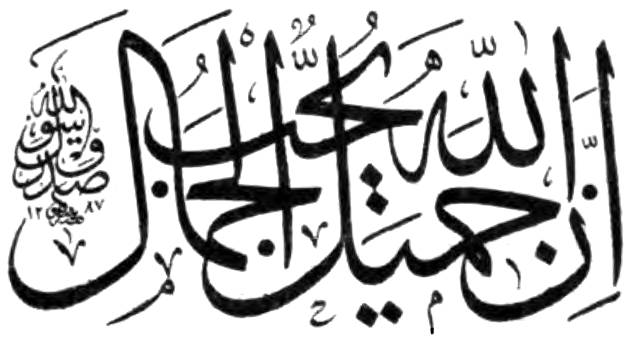 إن الله جميل يحب الجمال
صدق رسول الله
١٢٨٧